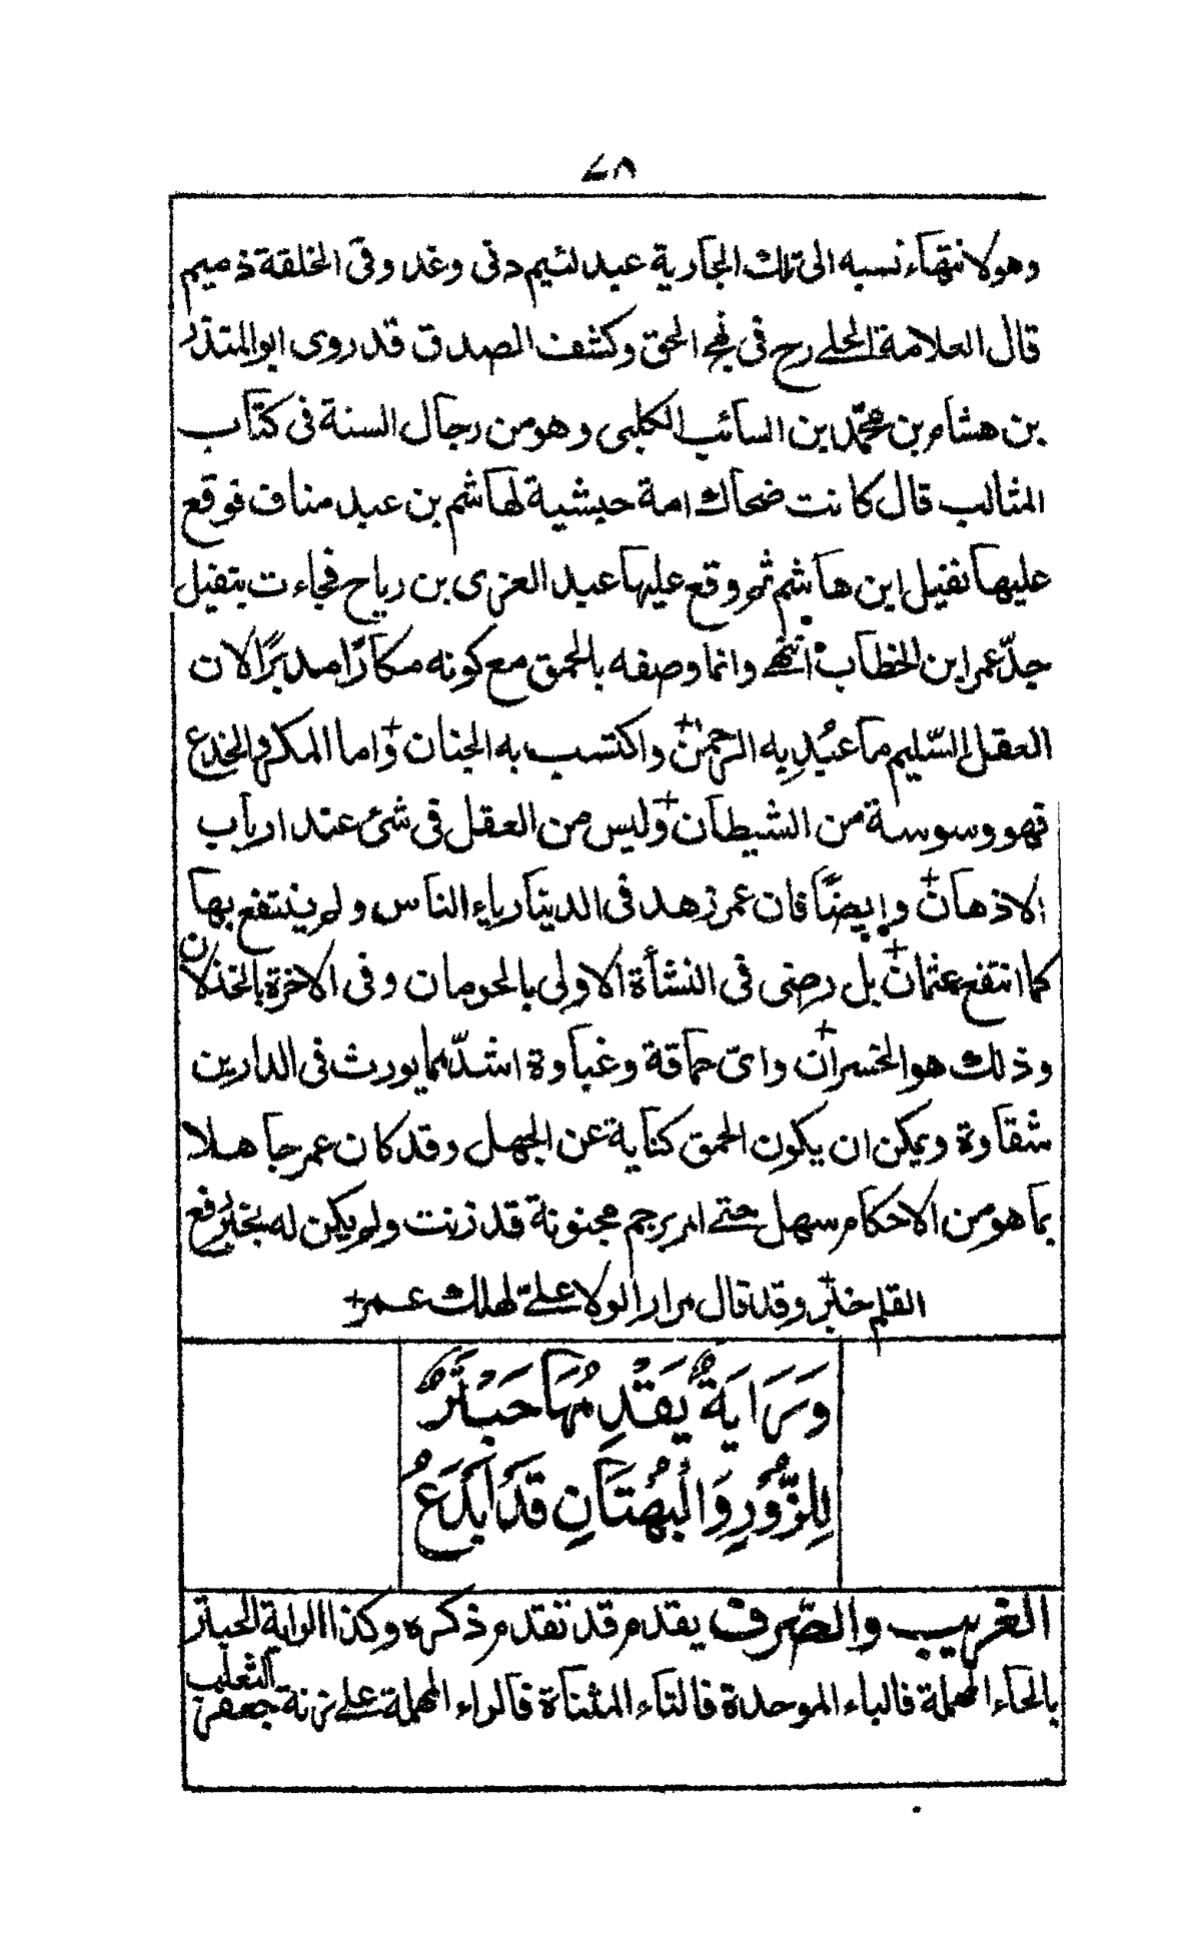 ٧٨
وهو لانتهاء نسبه الى تلك الجارية عبد لئيم دنى وغد وفى الخلقة ذميم
قال العلامة الحلى رح فى نهج الحق وكشف الصدق قد روى ابو المنذر
بن هشام بن محمّد بن السائب الكلبى وهو من رجال السنة فى كتاب
المثالب قال كانت ضحاك امة حبشية لهاشم بن عبد مناف فوقع
عليها نفيل ابن هاشم ثم وقع عليها عبد العزى بن رياح فجاءت بنفيل
جدّ عمر ابن الخطاب انتهى وانما وصفه بالحمق مع كونه مكارًا مدبرًا لان
العقل السّليم ما عُبِدِ به الرحمن واكتسب به الجنان واما المكر والخدع
فهو وسوسة من الشيطان وليس من العقل فى شئ عند ارباب
الاذهان وايضًا فان عمر زهد فى الدنيا رياء الناس ولم ينتفع بها
كما انتفع عثمان بل رضى فى النشأة الاولى بالحرمان وفى الاخرة بالخذلان
وذلك هو الخسران واىّ حماقة وغباوة اشدّ مما يورث فى الدارين
شقاوة ويمكن ان يكون الحمق كناية عن الجهل وقد كان عمر جاهلا
بما هو من الاحكام سهل حتى امر برجم مجنونة قد زنت ولم يكن له بخبر رفع
القلم خبر وقد قال مرارا لولا علىّ لهلك عمر
وَرَايَةٌ يَقْدِمُهَا حَبْتَرٌ
لِلزُّورِ وَالْبُهْتَانِ قَدْ اَبْدَعُ
الغريب والصّرف يقدم قد تقدم ذكره وكذا الراية الحبتر
بالحاء المهملة فالباء الموحدة فالتاء المثناة فالراء المهملة على زنة جعفر الثعلب